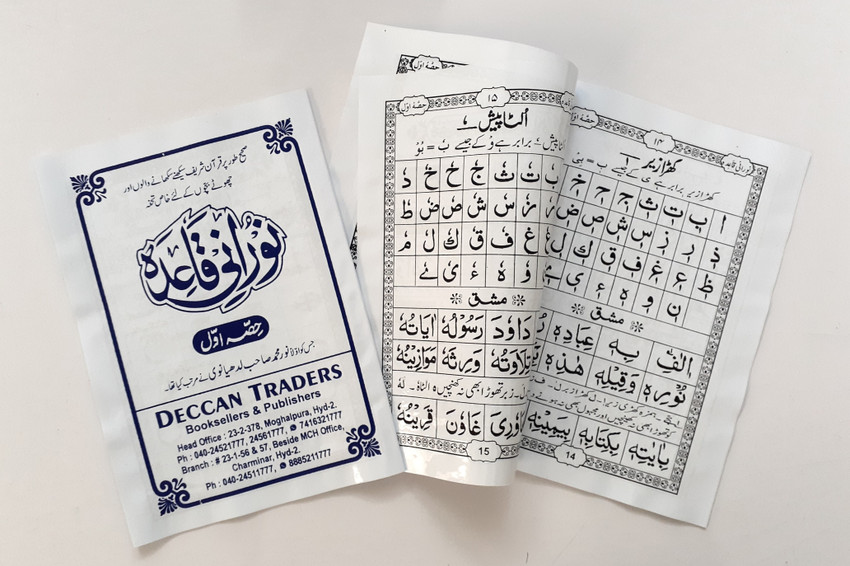 صحیح طور پر قرآن شریف سیکھنے سکھانے والوں اور
چھوٹے بچوں کے لئے خاص تحفہ
نورانی قاعدہ
حصّہ اوّل
جس کو مولانا نور محمد صاحب لدھیانوی نے مرتب کیا تھا۔
DECCAN TRADERS
Booksellers & Publishers
Head Office : 23-2-378, Moghalpura, Hyd-2.
Ph : 040-24521777, 24561777, 7416321777
Branch : # 23-1-56 & 57, Beside MCH Office,
Charminar, Hyd-2.
Ph : 040-24511777, 8885211777
حصّہ اوّل
حصّہ اوّل
۱۵
اُلٹا پیش
ب ت ث ج ح خ د
ر ز س ش ص ض ط
غ ف ق ك ل م
و ه ء ی ے
مشق
دَاوٗدَ رَسُوْلُهٗ اٰيَاتُهٗ
تِلَاوَتُهٗ وَرِثَهٗ مَوَازِيْنُهٗ
غَاوٗنَ قَرِيْنُهٗ
15
نورانی قاعدہ
۱۴
کھڑا زیر
ا ب ت ث ج ح خ
د ذ ر ز س ش ص ض
ط ظ ع غ ف ق ك ل
ن و ه ء ی
مشق
اٖلٰفِ بِهٖ عِبَادِهٖ
نُوْرِهٖ وَقِيْلِهٖ هٰذِهٖ
بِاٰيٰتِهٖ بِكِتَابِهٖ بِيَمِيْنِهٖ
14